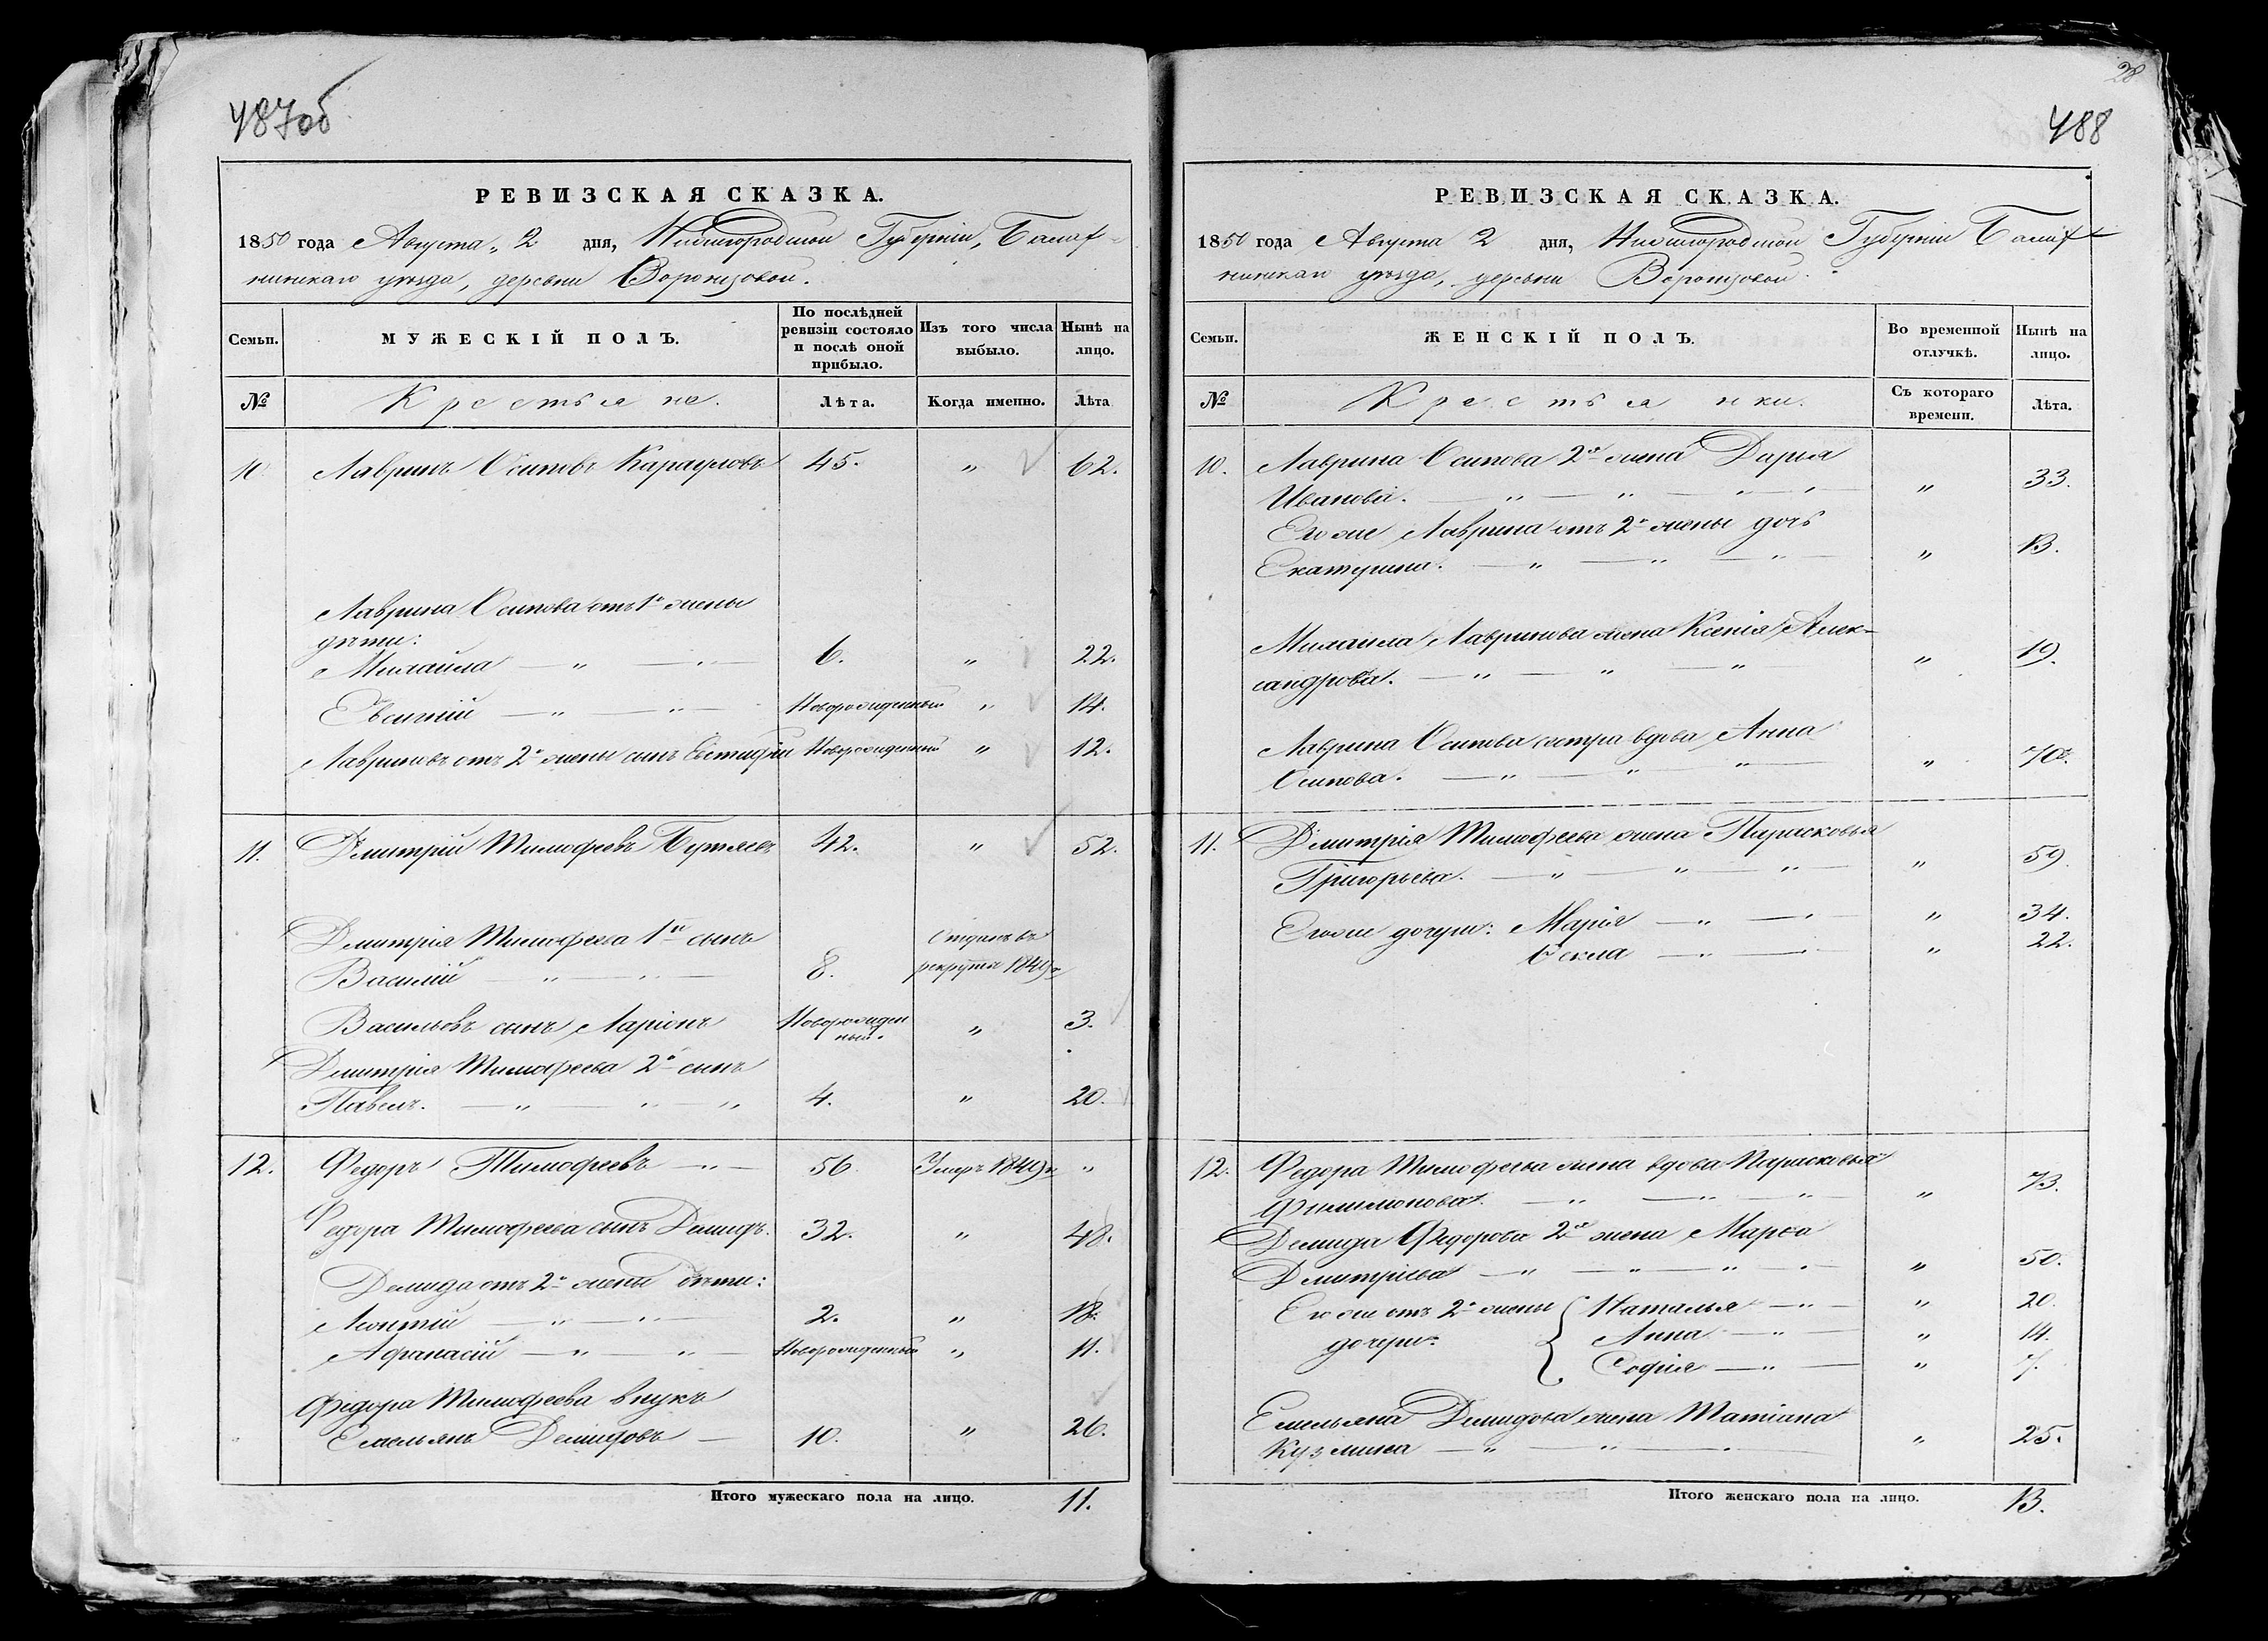 487об
РЕВИЗСКАЯ СКАЗКА.
1850 года Августа „ 2 дня, Нижегородской Губерніи, Балах-
нинскаго уѣзда, деревни Воронцовой.
Семьи. МУЖЕСКІЙ ПОЛЪ. По послѣдней ревизіи состояло и послѣ оной прибыло. Изъ того числа выбыло. Нынѣ на лицо.
№ Крестьяне. Лѣта. Когда именно. Лѣта
10 Лавринъ Осиповъ Карауловъ 45. „ 62.
Лаврина Осипова отъ 1й жены
дѣти:
Михайла — „ — „ — 6. „ 22.
Евсигній — „ — „ — Новорожденный „ 14.
Лавриновъ отъ 2й жены сынъ Евстифій Новорожденный „ 12.
11. Дмитрій Тимофеевъ Бутяевъ 42. „ 52.
Дмитрія Тимофеева 1й сынъ Отданъ въ
Василій — „ — „ — 8. рекруты 1849 г
Васильевъ сынъ Ларіонъ Новорожден
ный. „ 3.
Дмитрія Тимофеева 2й сынъ
Павелъ. — „ — „ — „ 4. „ 20.
12. Федоръ Тимофеевъ — „ — 56. Умеръ 1849 г „
Федора Тимофеева сынъ Демидъ. 32. „ 48.
Демида отъ 2й жены дѣти:
Леонтій — „ — „ — 2. „ 18.
Афанасій — „ — „ — Новорожденный „ 11.
Федора Тимофеева внукъ
Емельянъ Демидовъ — 10. „ 26.
Итого мужескаго пола на лицо. 11.
28
488
РЕВИЗСКАЯ СКАЗКА.
1850 года Августа 2 дня, Нижегородской Губерніи Балах-
нинскаго уѣзда, деревни Воронцовой.
Семьи. ЖЕНСКІЙ ПОЛЪ. Во временной отлучкѣ. Нынѣ на лицо.
№ Крестьянки. Съ котораго времени. Лѣта.
10. Лаврина Осипова 2я жена Дарья
Иванова. — „ — „ — „ — „ — „ 33.
Его же Лаврина отъ 2й жены дочь
Екатерина. — „ — „ — „ — „ 13.
Михайла Лавринова жена Ксенія Алек-
сандрова. — „ — „ — „ „ 19.
Лаврина Осипова сестра вдова Анна
Осипова. — „ — „ — „ — „ 70.
11. Дмитрія Тимофеева жена Парасковья
Григорьева. — „ — „ — „ — „ 59
Его же дочери: Марія — „ — „ — „ 34.
Фекла — „ — „ — „ 22.
12. Федора Тимофеева жена вдова Парасковья
Филимонова. — „ — „ — „ — „ 73.
Демида Федорова 2я жена Марфа
Дмитріева — „ — „ — „ — „ — „ 50.
Его же отъ 2й жены Наталья — „ — „ 20.
дочери: Анна — „ — „ 14.
Софія — „ — „ 7.
Емельяна Демидова жена Татіана
Кузмина — „ — „ — „ — „ 25.
Итого женскаго пола на лицо. 13.